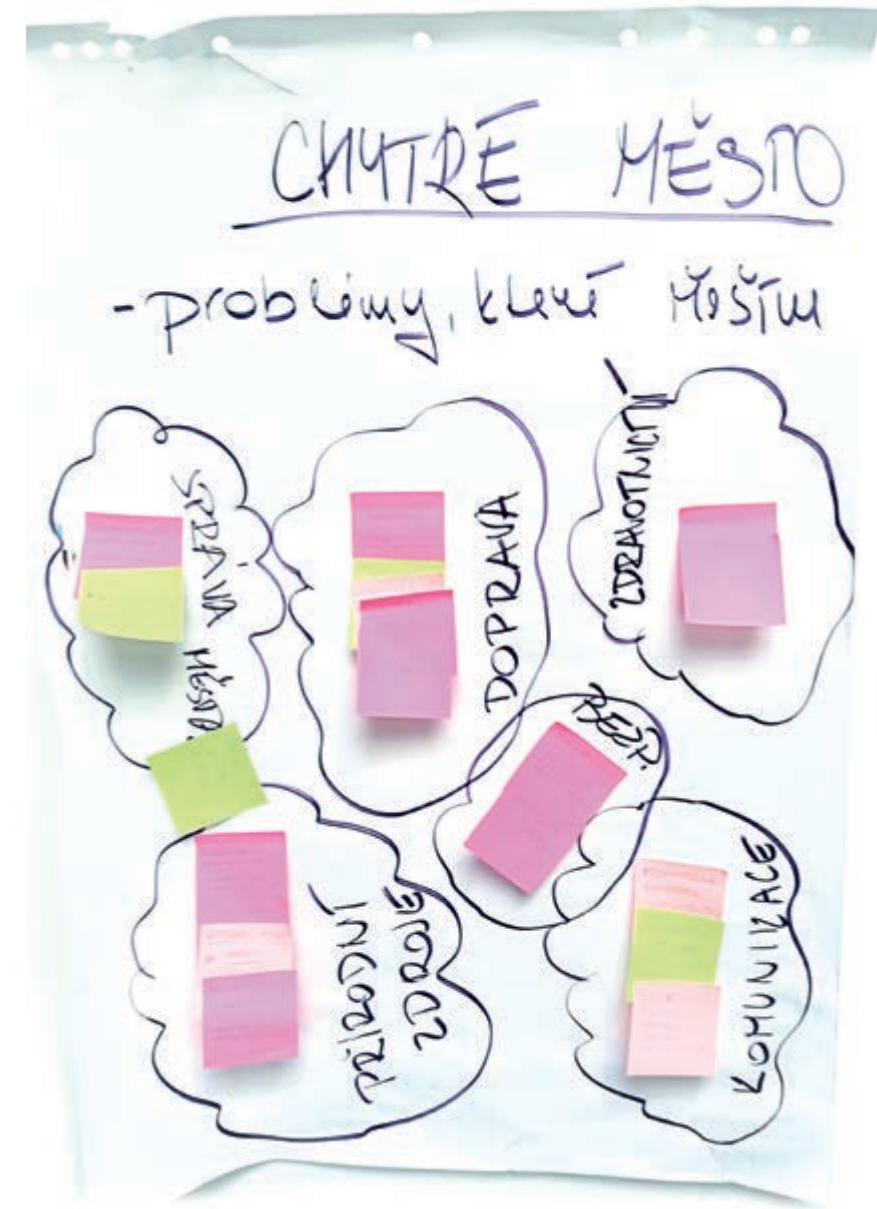 CHYTRÉ MĚSTO
- problémy, které řeším
SPRÁVA MĚSTA
DOPRAVA
ZDRAVOTNICTVÍ
BEZP.
PŘÍRODNÍ
ZDROJE
KOMUNIKACE